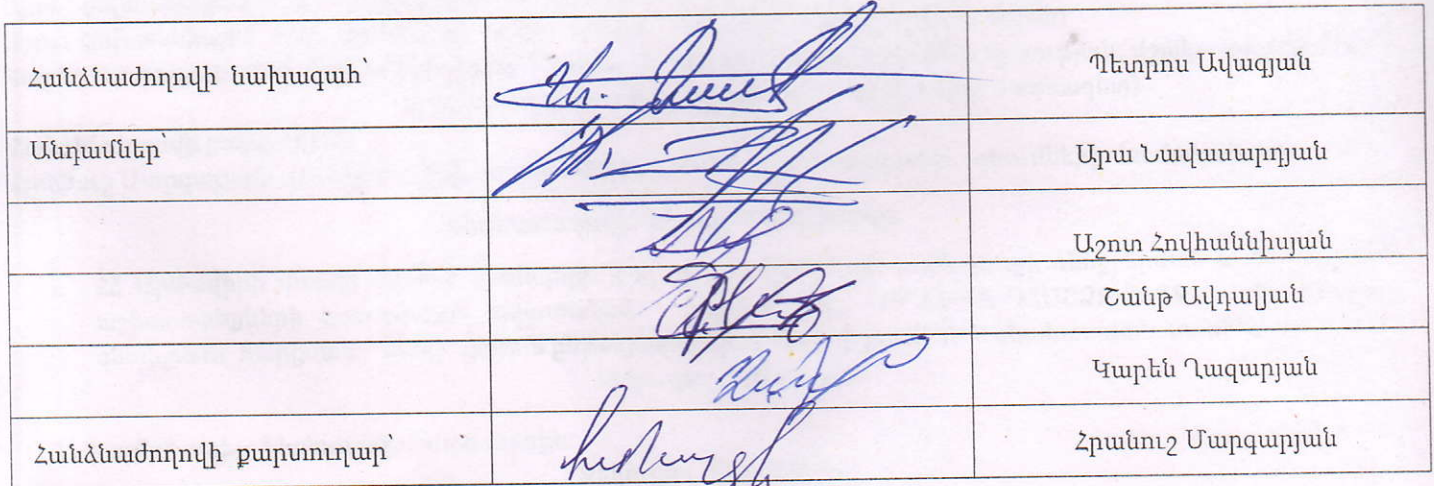 Հանձնաժողովի նախագահ՝
Պետրոս Ավագյան
Անդամներ՝
Արա Նավասարդյան
Աշոտ Հովհաննիսյան
Շանթ Ավդալյան
Կարեն Ղազարյան
Հանձնաժողովի քարտուղար՝
Հրանուշ Մարգարյան